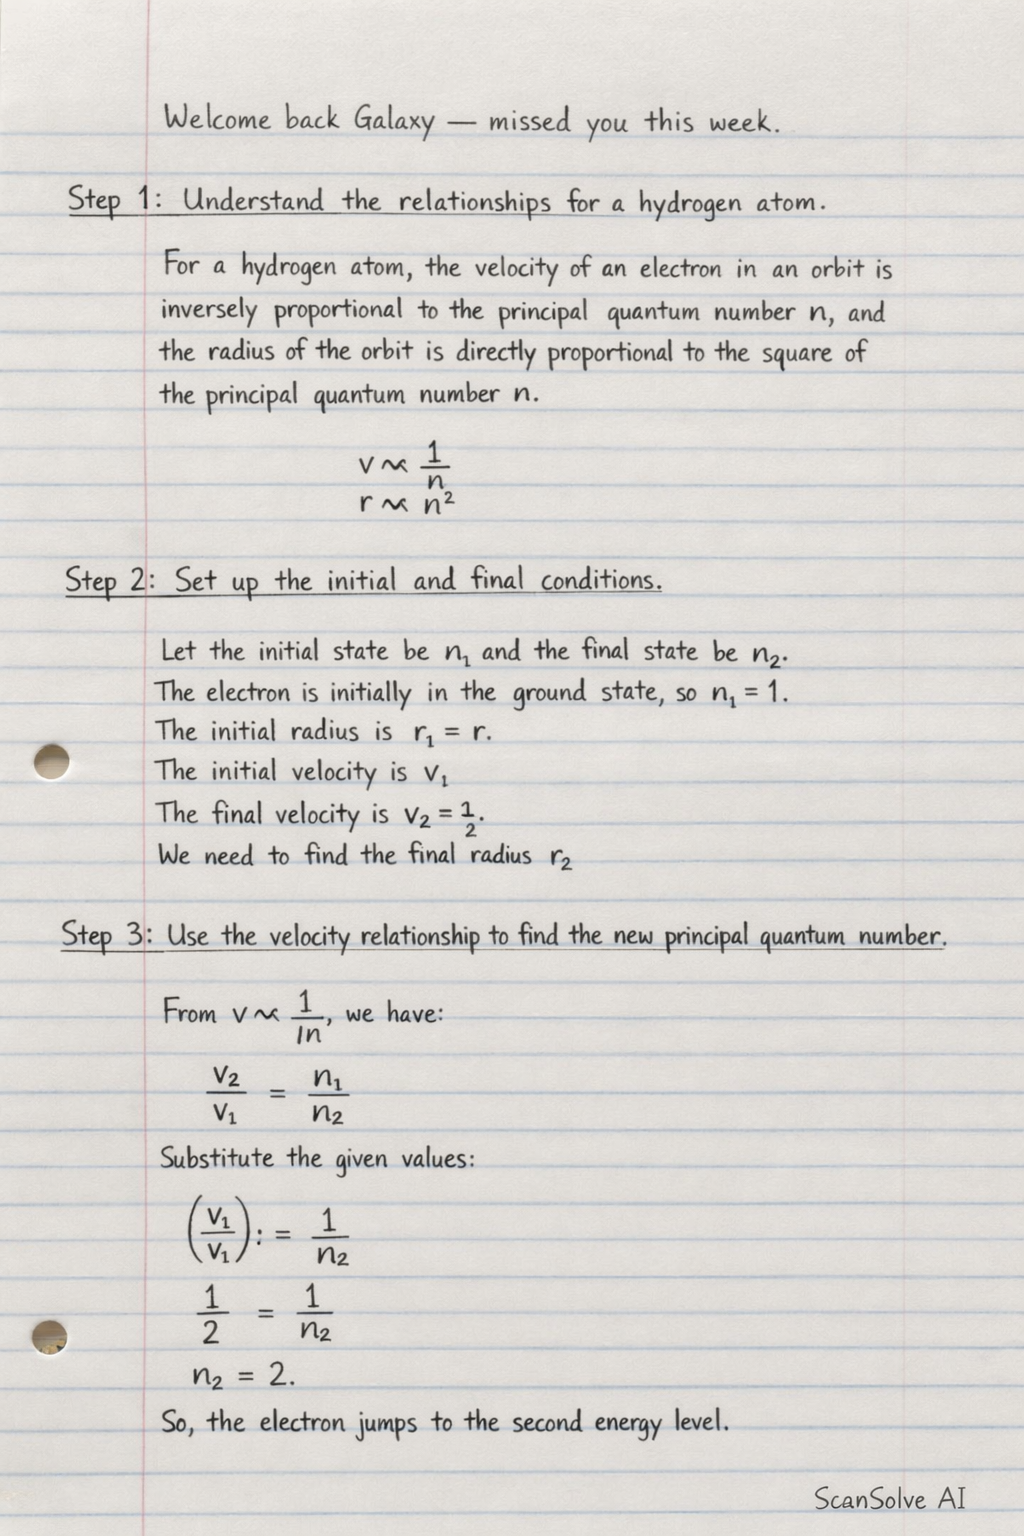 Welcome back Galaxy — missed you this week.
Step 1: Understand the relationships for a hydrogen atom.
For a hydrogen atom, the velocity of an electron in an orbit is
inversely proportional to the principal quantum number n, and
the radius of the orbit is directly proportional to the square of
the principal quantum number n.
v ∝ 1/n
r ∝ n²
Step 2: Set up the initial and final conditions.
Let the initial state be n₁ and the final state be n₂.
The electron is initially in the ground state, so n₁ = 1.
The initial radius is r₁ = r.
The initial velocity is v₁
The final velocity is v₂ = 1/2.
We need to find the final radius r₂
Step 3: Use the velocity relationship to find the new principal quantum number.
From v ∝ 1/1n, we have:
v₂/v₁ = n₁/n₂
Substitute the given values:
(v₁/v₁): = 1/n₂
1/2 = 1/n₂
n₂ = 2.
So, the electron jumps to the second energy level.
ScanSolve AI